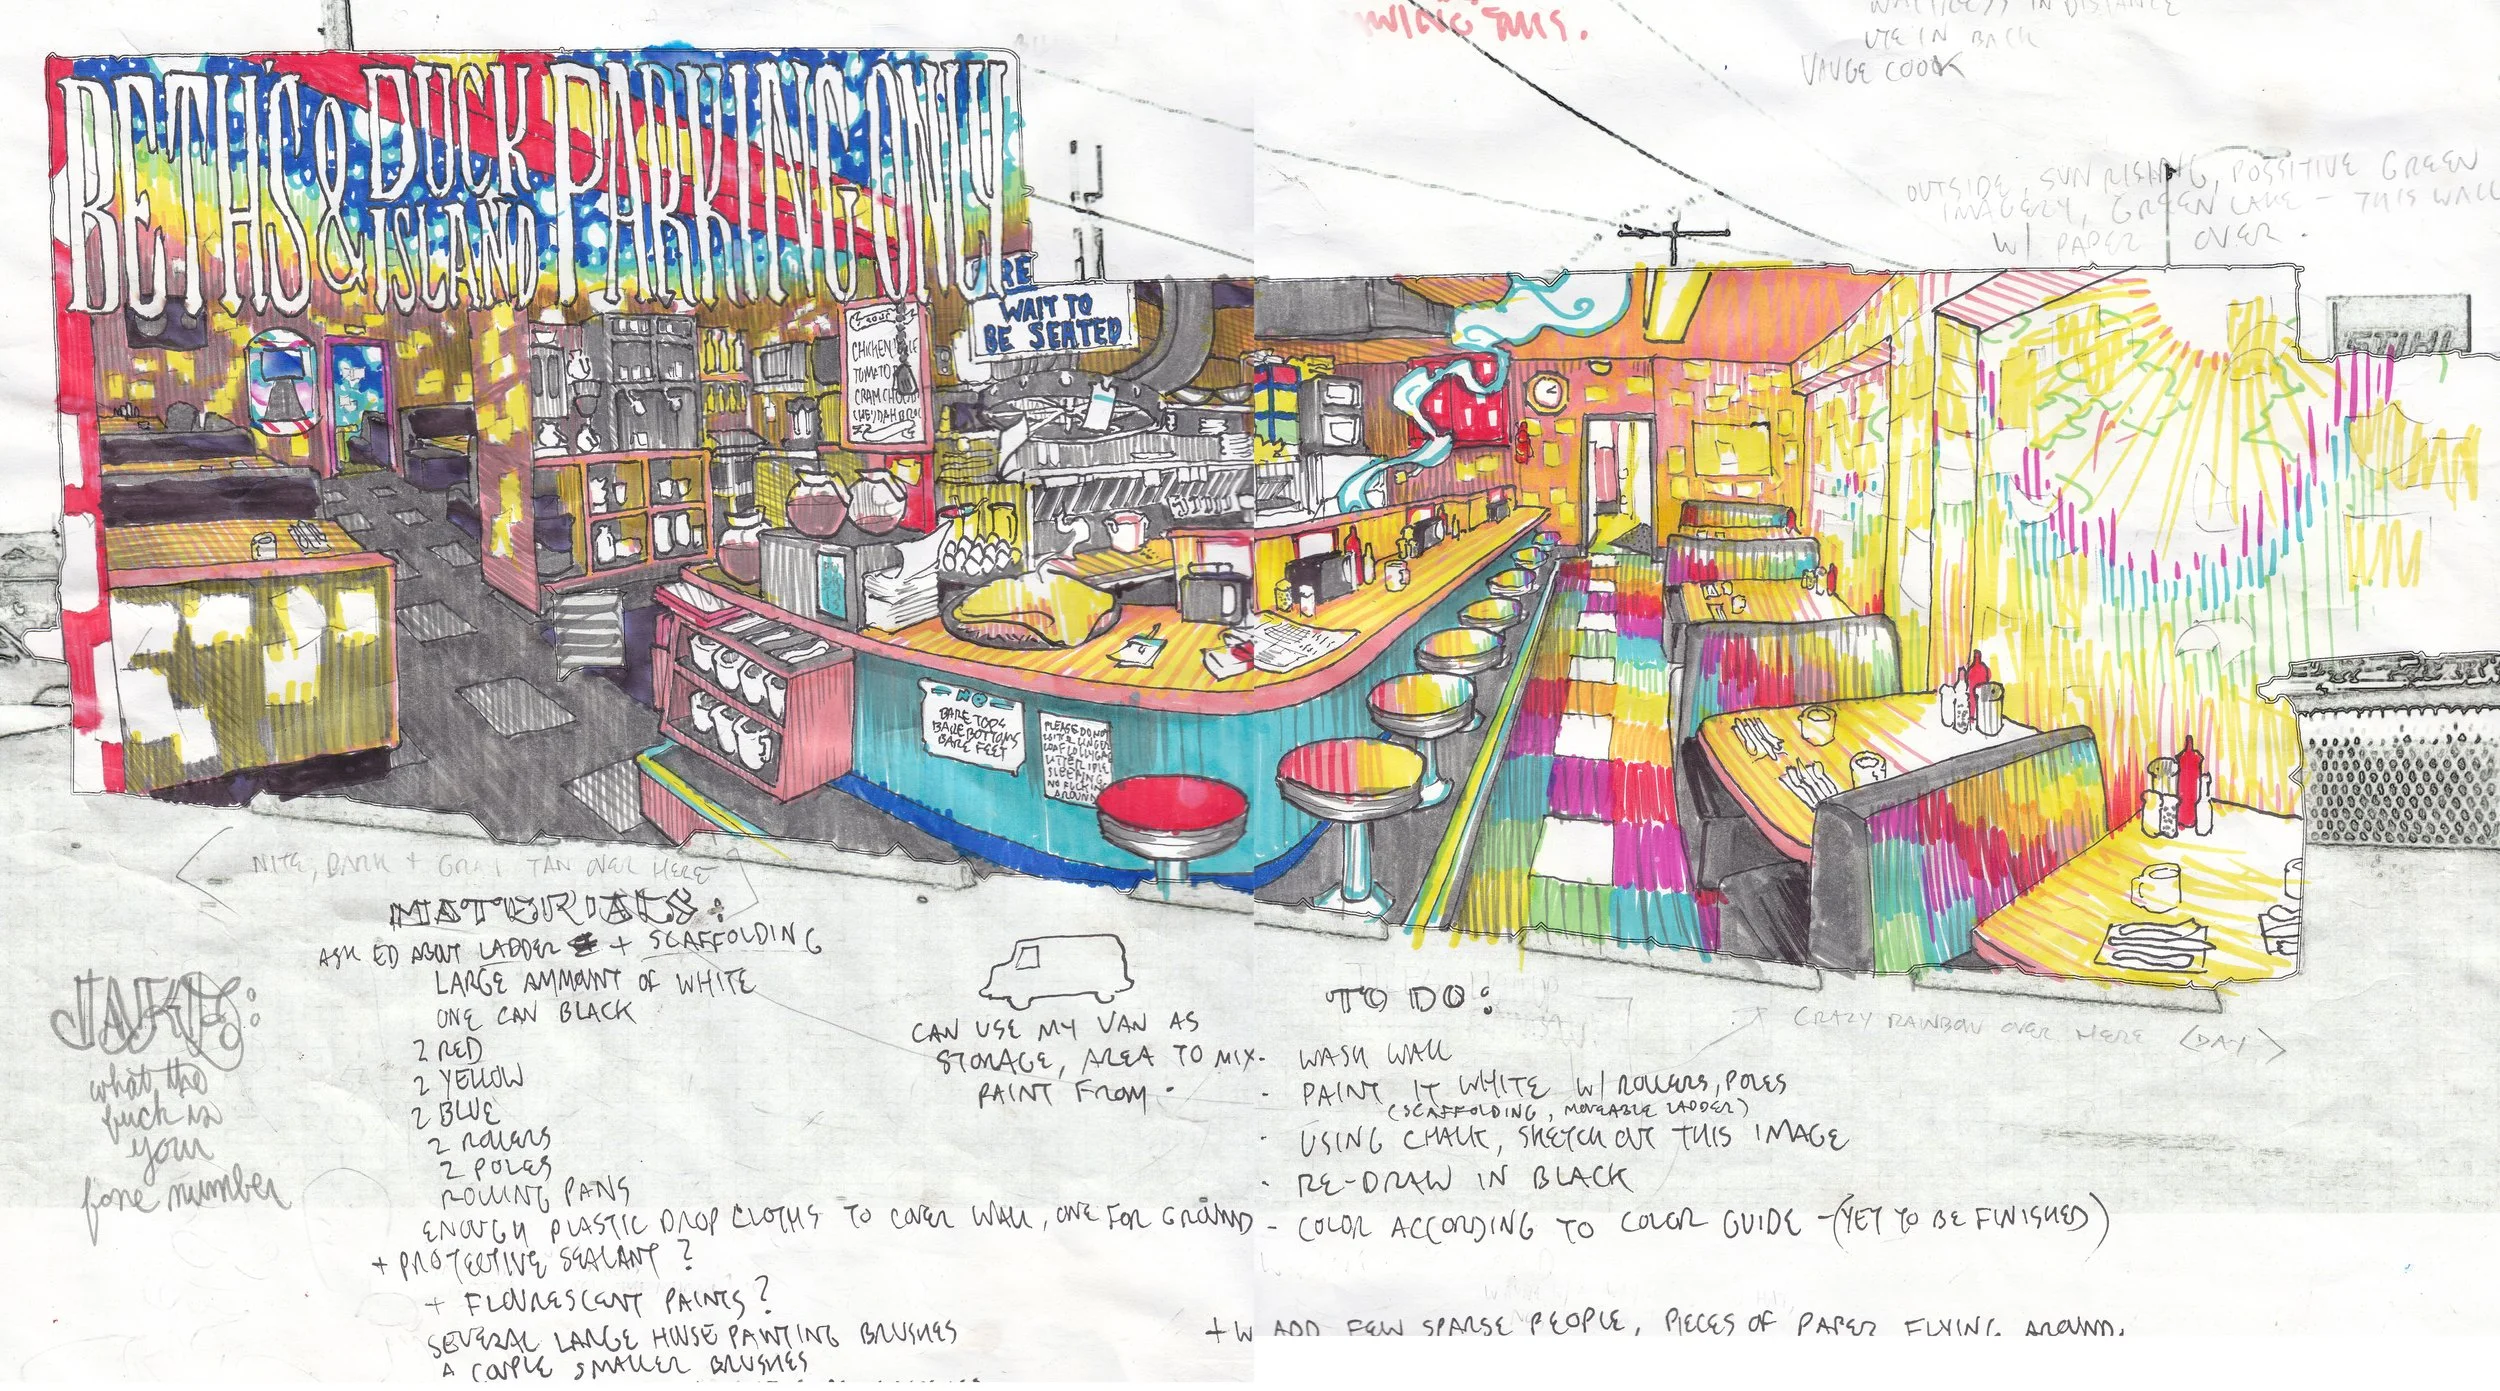 WAITRESS IN DISTANCE
IN BACK
VAUGE COOK
THIS.
OUTSIDE, SUN RISING, POSSITIVE GREEN
IMAGERY, GREEN LAKE - THIS WALL
W/ PAPER OVER.
BETH'S & DUCK ISLAND PARKING ONLY
WAIT TO
BE SEATED
SOUP
CHICKEN
TOMATO
STIHL
NO
BARE TOPS
BARE BOTTOMS
BARE FEET
PLEASE DO NOT
SLEEPING
NO FUCKING
AROUND
NITE, DARK + GRAY TAN OVER HERE
MATERIALS:
ASK ED ABOUT LADDER + SCAFFOLDING
LARGE AMMOUNT OF WHITE
ONE CAN BLACK
2 RED
2 YELLOW
2 BLUE
2 ROLLERS
2 POLES
ROLLING PANS
ENOUGH PLASTIC DROP CLOTHS TO COVER WALL, ONE FOR GROUND
+ PROTECTIVE SEALANT?
+ FLOURESCENT PAINTS?
SEVERAL LARGE HOUSE PAINTING BRUSHES
A COUPLE SMALLER BRUSHES
what the
fuck is
your
fone number
CAN USE MY VAN AS
STORAGE, AREA TO MIX
PAINT FROM
TO DO:
- WASH WALL
- PAINT IT WHITE W/ ROLLERS, POLES
(SCAFFOLDING, MOVEABLE LADDER)
- USING CHALK, SKETCH OUT THIS IMAGE
- RE-DRAW IN BLACK
- COLOR ACCORDING TO COLOR GUIDE - (YET TO BE FINISHED)
CRAZY RAINBOW OVER HERE (DAY)
+ W ADD FEW SPARSE PEOPLE, PIECES OF PAPER FLYING AROUND.